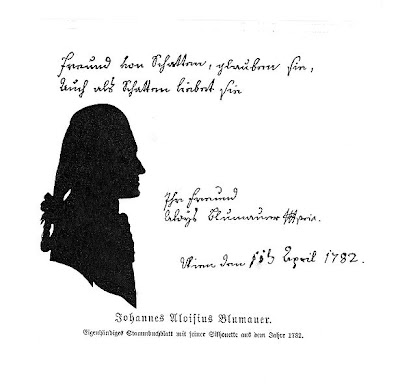 Freund von Schatten, glauben sie,
Auch als Schatten liebet sie
Ihr Freund
Aloys Blumauer
Wien den April 1782.
Johannes Aloisius Blumauer.
Eigenhändiges Stammbuchblatt mit seiner Silhouette aus dem Jahre 1782.